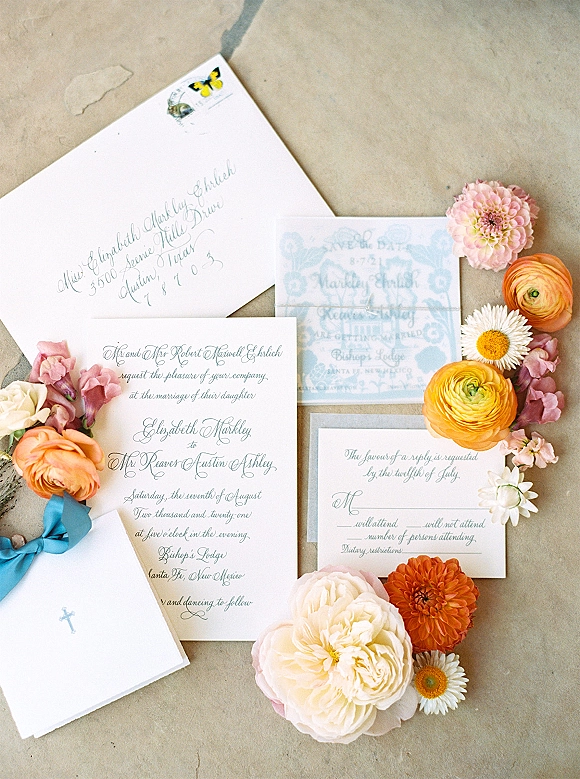 Miss Elizabeth Markley Ehrlich
3500 Scenic Hills Drive
Austin, Texas
78703
SAVE the DATE
8·7·21
Markley Ehrlich
Reaves Ashley
ARE GETTING MARRIED
Bishop's Lodge
SANTA FE, NEW MEXICO
Mr. and Mrs. Robert Maxwell Ehrlich
request the pleasure of your company
at the marriage of their daughter
Elizabeth Markley
to
Mr. Reaves Austin Ashley
Saturday, the seventh of August
Two thousand and twenty-one
at five o'clock in the evening
Bishop's Lodge
Santa Fe, New Mexico
and dancing to follow
The favour of a reply is requested
by the twelfth of July.
M
will attend will not attend
number of persons attending
Dietary restrictions: